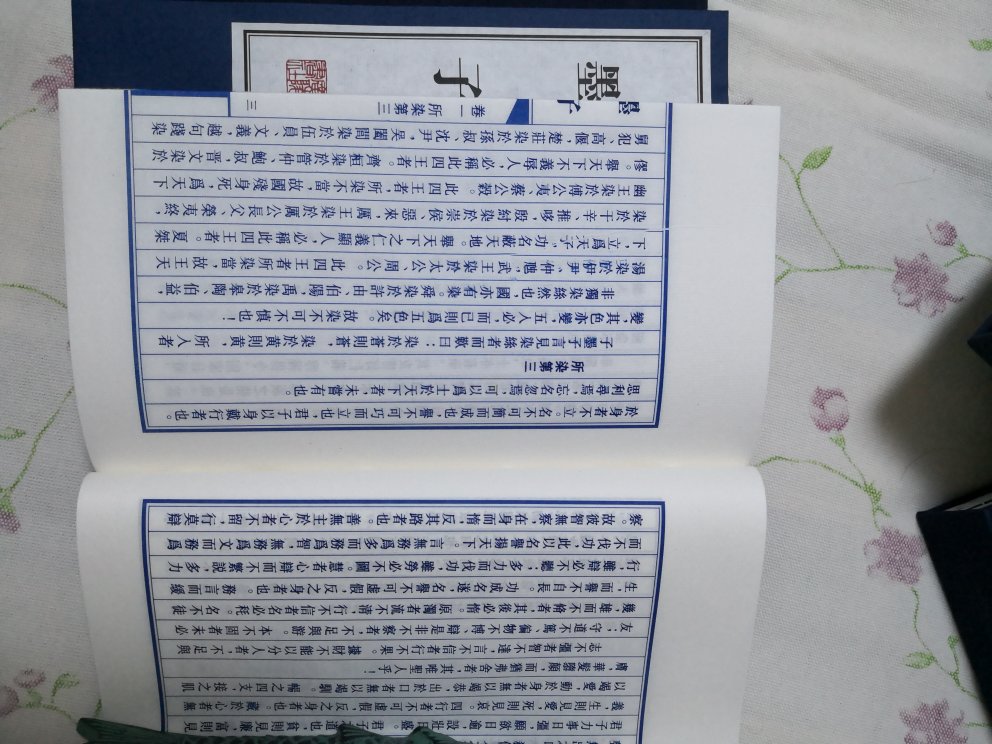 君子力事日彊，願欲日逾，設壯日盛。君子之道也，貧則見廉，富則見
義，生則見愛，死則見哀。四行者不可虛假，反之身者也。藏於心者無
以竭愛，動於身者無以竭恭，出於口者無以竭馴。暢之四支，接之肌
膚，華髮隳顛，而猶弗舍者，其唯聖人乎！
志不彊者智不達，言不信者行不果。據財不能以分人者，不足與
友；守道不篤，徧物不博，辯是非不察者，不足與游。本不固者末必
幾，雄而不脩者，其後必惰。原濁者流不清，行不信者名必秏。名不徒
生而譽不自長。功成名遂，名譽不可虛假，反之身者也。務言而緩
行，雖辯必不聽；多力而伐功，雖勞必不圖。慧者心辯而不繁說，多力
而不伐功，此以名譽揚天下。言無務爲多而務爲智，無務爲文而務爲
察。故彼智無察，在身而惰，反其路者也。善無主於心者不留，行莫辯
於身者不立。名不可簡而成也，譽不可巧而立也，君子以身戴行者也。
思利尋焉，忘名忽焉，可以爲士於天下者，未嘗有也。
所染第三
子墨子言見染絲者而歎曰：染於蒼則蒼，染於黃則黃，所入者
變，其色亦變，五入必，而已則爲五色矣。故染不可不慎也！
非獨染絲然也，國亦有染。舜染於許由、伯陽，禹染於皋陶、伯益，
湯染於伊尹、仲虺，武王染於太公、周公。此四王者所染當，故王天
下，立爲天子，功名蔽天地。舉天下之仁義顯人，必稱此四王者。夏桀
染於干辛、推哆，殷紂染於崇侯、惡來，厲王染於厲公長父、榮夷終，
幽王染於傅公夷、蔡公穀。此四王者，所染不當，故國殘身死，爲天下
僇。舉天下不義辱人，必稱此四王者。齊桓染於管仲、鮑叔，晉文染於
舅犯、高偃，楚莊染於孫叔、沈尹，吳闔閭染於伍員、文義，越句踐染
卷一 所染第三
三
墨子